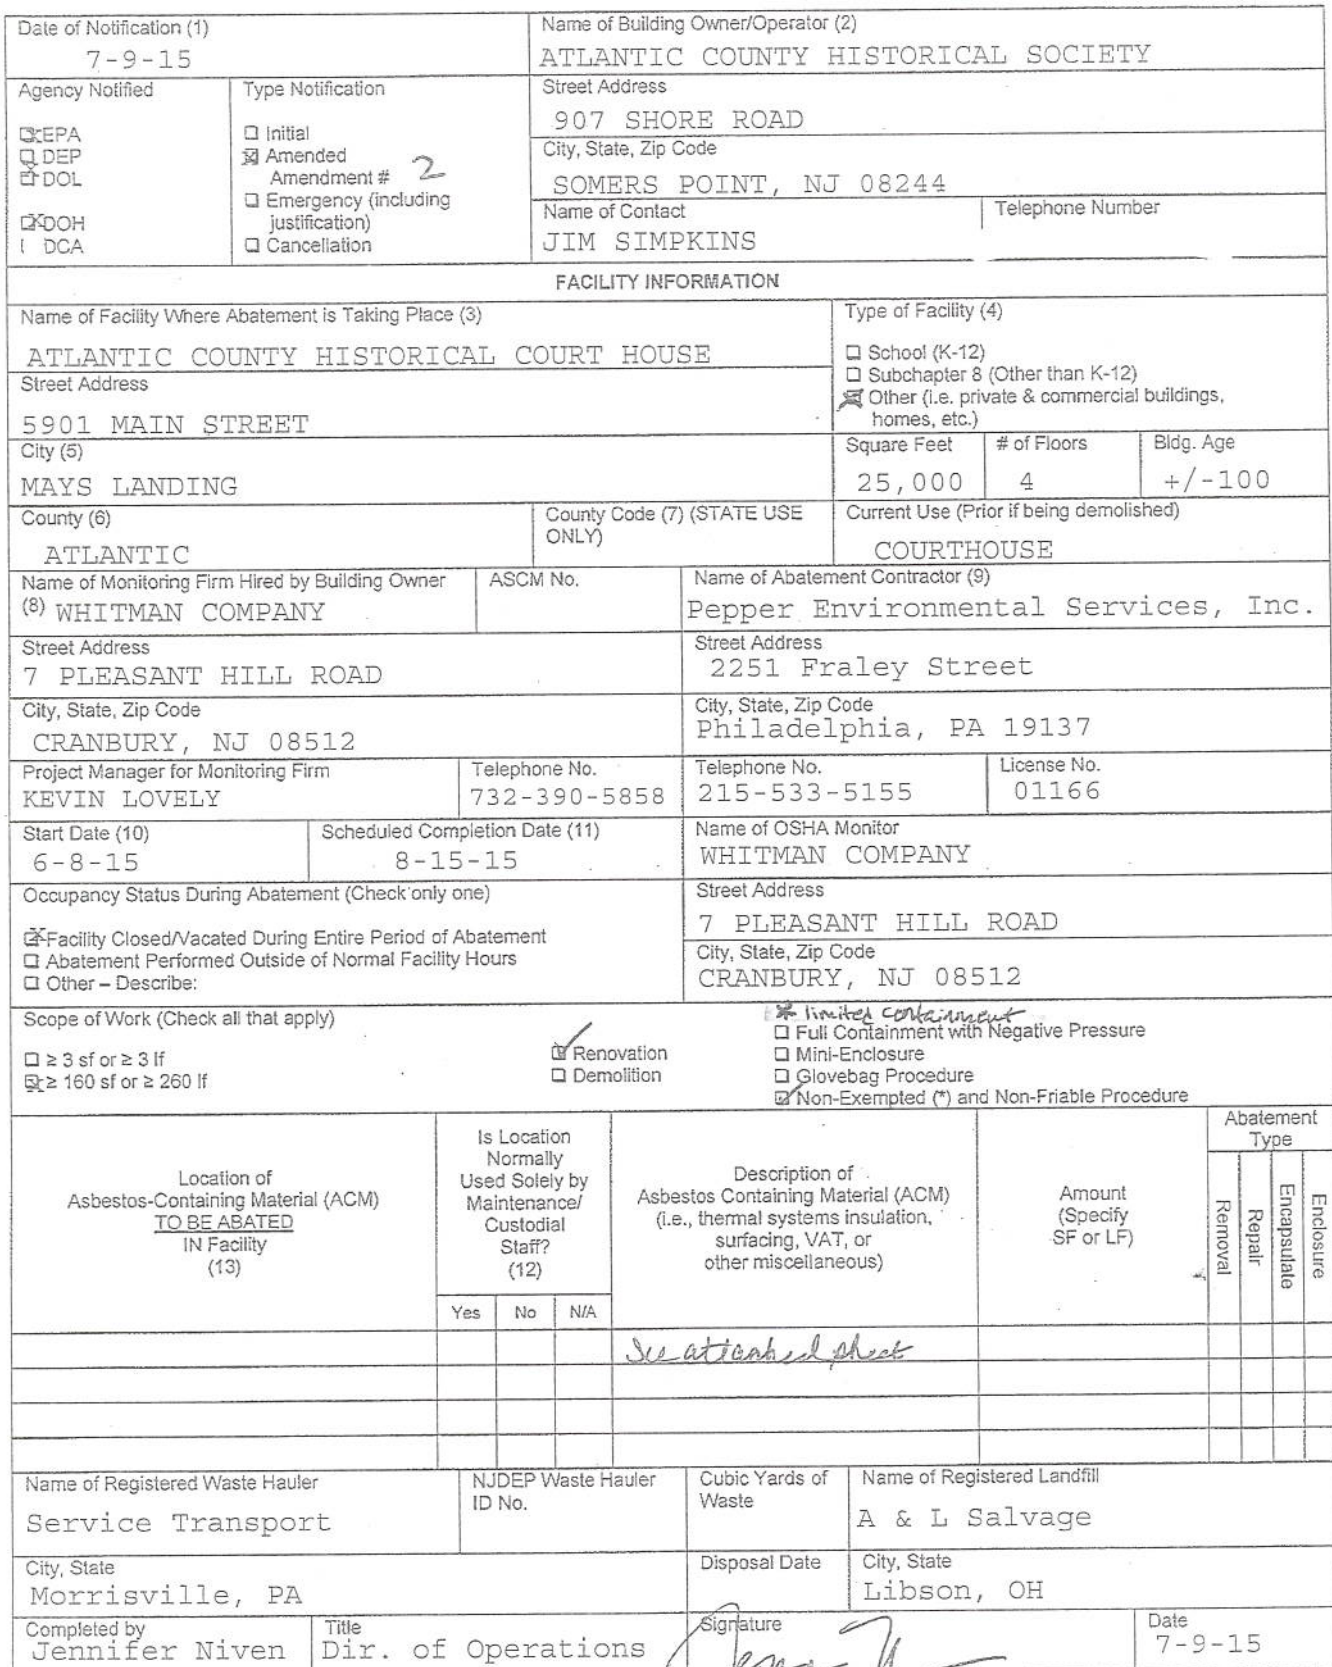 Date of Notification (1)
7-9-15
Name of Building Owner/Operator (2)
ATLANTIC COUNTY HISTORICAL SOCIETY
Agency Notified
EPA
DEP
DOL
DOH
DCA
Type Notification
Initial
Amended
Amendment # 2
Emergency (including
justification)
Cancellation
Street Address
907 SHORE ROAD
City, State, Zip Code
SOMERS POINT, NJ 08244
Name of Contact
JIM SIMPKINS
Telephone Number
FACILITY INFORMATION
Name of Facility Where Abatement is Taking Place (3)
ATLANTIC COUNTY HISTORICAL COURT HOUSE
Street Address
5901 MAIN STREET
Type of Facility (4)
School (K-12)
Subchapter 8 (Other than K-12)
Other (i.e. private & commercial buildings,
homes, etc.)
City (5)
MAYS LANDING
Square Feet
25,000
# of Floors
4
Bldg. Age
+/-100
County (6)
ATLANTIC
County Code (7) (STATE USE
ONLY)
Current Use (Prior if being demolished)
COURTHOUSE
Name of Monitoring Firm Hired by Building Owner
(8) WHITMAN COMPANY
ASCM No.
Name of Abatement Contractor (9)
Pepper Environmental Services, Inc.
Street Address
7 PLEASANT HILL ROAD
Street Address
2251 Fraley Street
City, State, Zip Code
CRANBURY, NJ 08512
City, State, Zip Code
Philadelphia, PA 19137
Project Manager for Monitoring Firm
KEVIN LOVELY
Telephone No.
732-390-5858
Telephone No.
215-533-5155
License No.
01166
Start Date (10)
6-8-15
Scheduled Completion Date (11)
8-15-15
Name of OSHA Monitor
WHITMAN COMPANY
Occupancy Status During Abatement (Check only one)
Facility Closed/Vacated During Entire Period of Abatement
Abatement Performed Outside of Normal Facility Hours
Other – Describe:
Street Address
7 PLEASANT HILL ROAD
City, State, Zip Code
CRANBURY, NJ 08512
Scope of Work (Check all that apply)
≥ 3 sf or ≥ 3 lf
≥ 160 sf or ≥ 260 lf
Renovation
Demolition
* limited containment
Full Containment with Negative Pressure
Mini-Enclosure
Glovebag Procedure
Non-Exempted (*) and Non-Friable Procedure
Location of
Asbestos-Containing Material (ACM)
TO BE ABATED
IN Facility
(13)
Is Location
Normally
Used Solely by
Maintenance/
Custodial
Staff?
(12)
Yes No N/A
Description of
Asbestos Containing Material (ACM)
(i.e., thermal systems insulation,
surfacing, VAT, or
other miscellaneous)
Amount
(Specify
SF or LF)
Abatement
Type
Removal
Repair
Encapsulate
Enclosure
See attached sheet
Name of Registered Waste Hauler
Service Transport
NJDEP Waste Hauler
ID No.
Cubic Yards of
Waste
Name of Registered Landfill
A & L Salvage
City, State
Morrisville, PA
Disposal Date
City, State
Libson, OH
Completed by
Jennifer Niven
Title
Dir. of Operations
Signature
Date
7-9-15